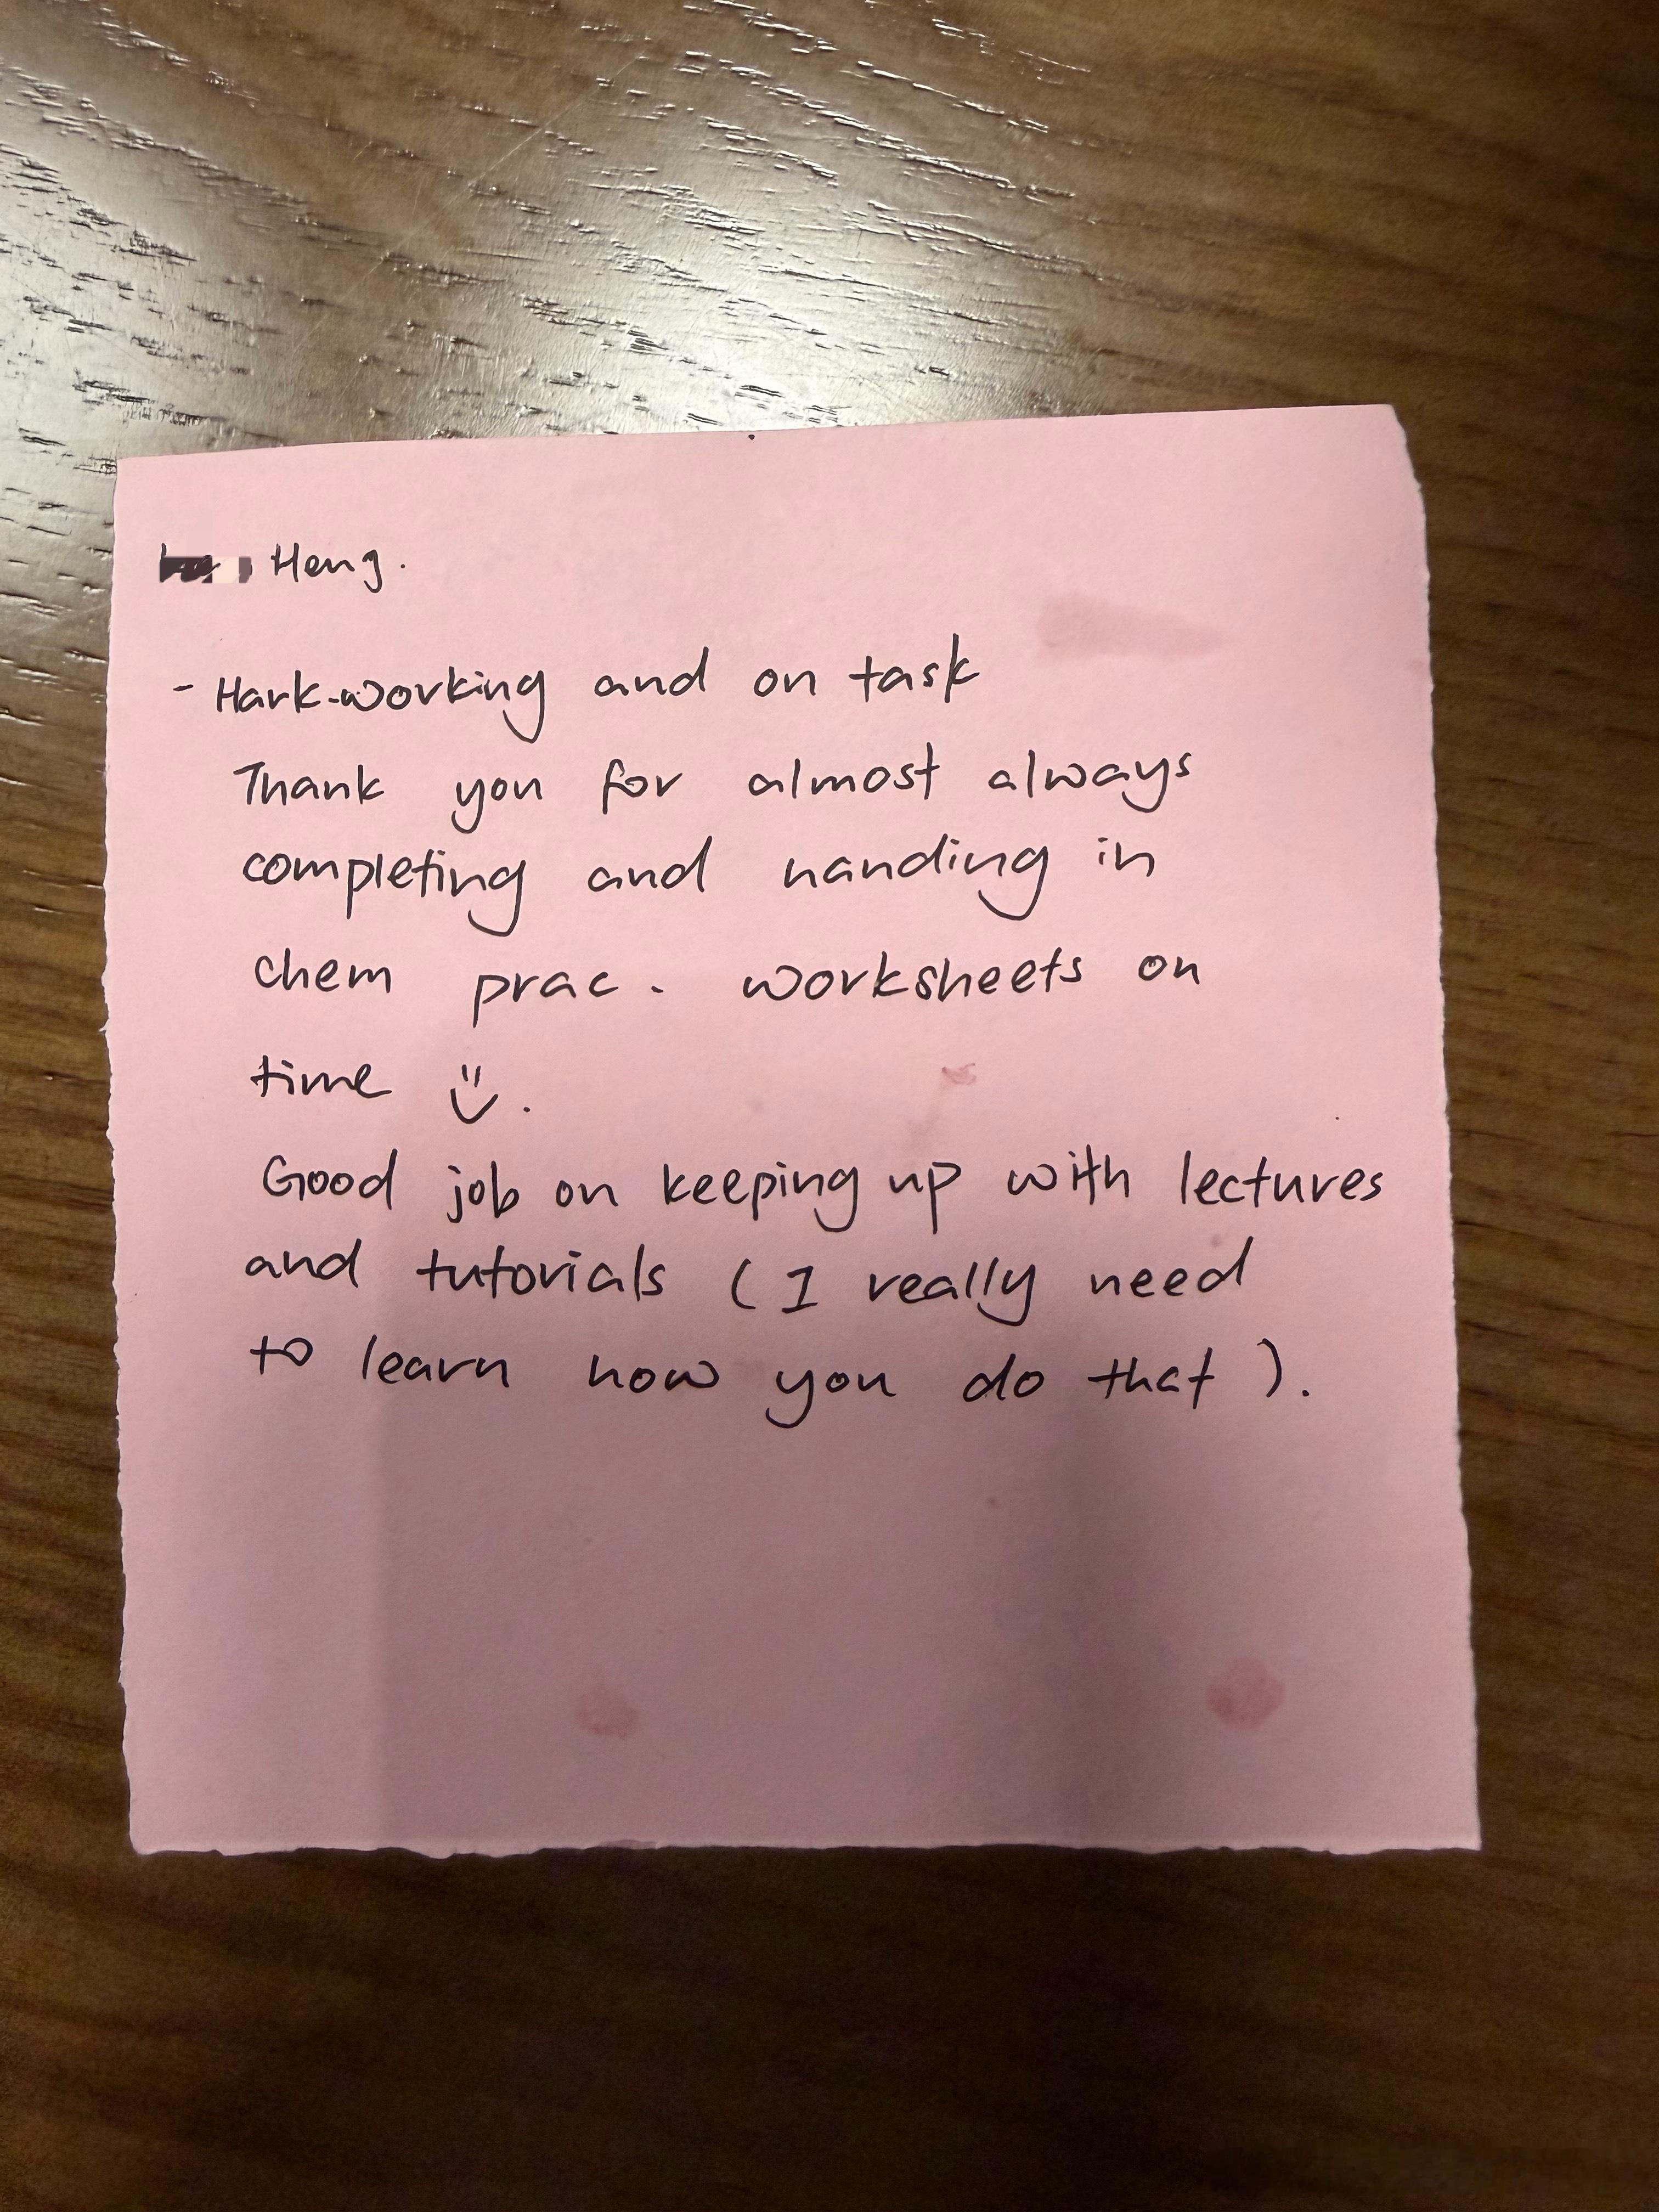 Heng.
- Hark-working and on task
Thank you for almost always
completing and handing in
chem prac. worksheets on
time :).
Good job on keeping up with lectures
and tutorials (I really need
to learn how you do that).